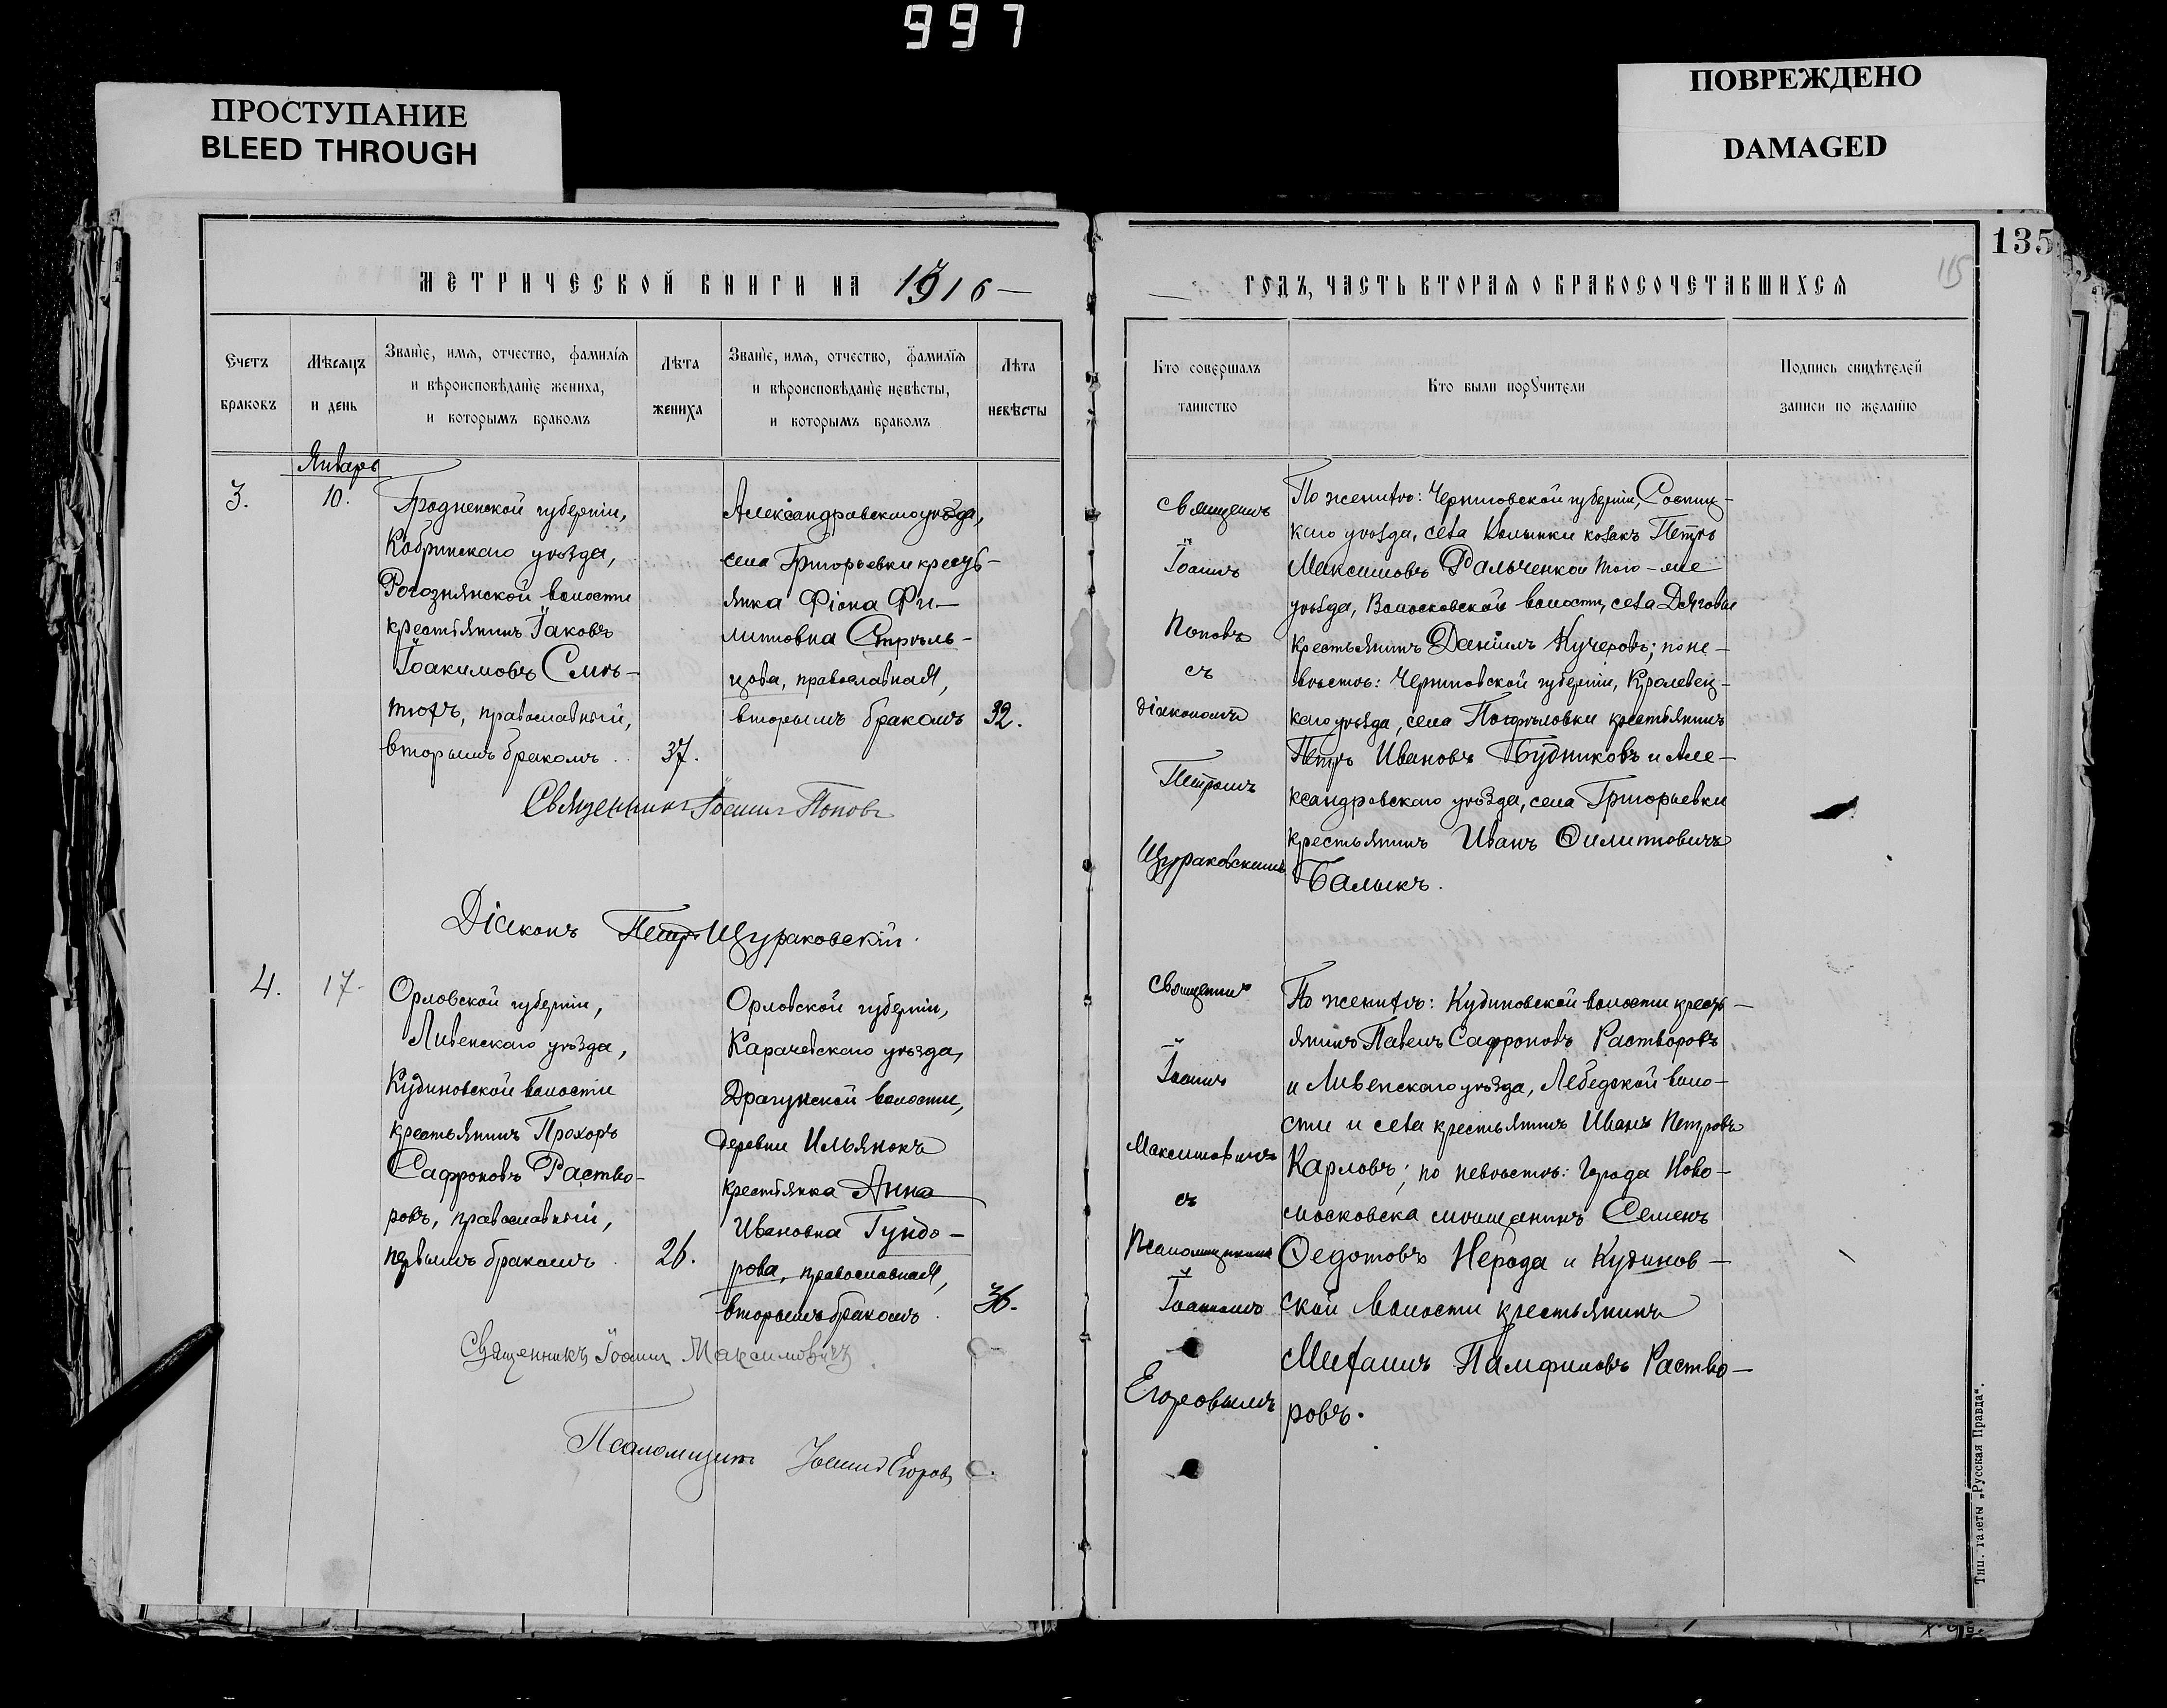 997
ПРОСТУПАНИЕ
BLEED THROUGH
ПОВРЕЖДЕНО
DAMAGED
135
115
МЕТРИЧЕСКОЙ КНИГИ НА 1916
ГОДЪ, ЧАСТЬ ВТОРАЯ О БРАКОСОЧЕТАВШИХСЯ
Счетъ
браковъ
Мѣсяцъ
и день
Званіе, имя, отчество, фамилія
и вѣроисповѣданіе жениха,
и которымъ бракомъ
Лѣта
жениха
Званіе, имя, отчество, фамилія
и вѣроисповѣданіе невѣсты,
и которымъ бракомъ
Лѣта
невѣсты
Кто совершалъ
таинство
Кто были поручители
Подпись свидѣтелей
записи по желанію
Январь
3.
10.
Гродненской губерніи,
Кобринскаго уѣзда,
Рогознянской волости
крестьянинъ Іаковъ
Іоакимовъ Смѣ-
тюхъ, православный,
вторымъ бракомъ.
37.
Александровскаго уѣзда,
села Григорьевки кресть-
янка Фіона Фи-
липповна Стрѣль-
цова, православная,
вторымъ бракомъ
32.
Священникъ Іоаннъ Поповъ
Діаконъ Петръ Щураковскій.
Священникъ
Іоаннъ
Поповъ
съ
діакономъ
Петромъ
Щураковскимъ
По женихѣ: Черниговской губерніи, Сосниц-
каго уѣзда, села Волынки козакъ Петръ
Максимовъ Фальченко и того-же
уѣзда, Волосковской волости, села Дягова
крестьянинъ Даніилъ Кучеровъ; по не-
вѣстѣ: Черниговской губерніи, Кролевец-
каго уѣзда, села крестьянинъ
Петръ Ивановъ Будниковъ и Але-
ксандровскаго уѣзда, села Григорьевки
крестьянинъ Иванъ Филипповичъ
Балыкъ.
4.
17.
Орловской губерніи,
Ливенскаго уѣзда,
Кудиновской волости
крестьянинъ Прохоръ
Сафроновъ Раство-
ровъ, православный,
первымъ бракомъ.
26.
Орловской губерніи,
Карачевскаго уѣзда,
Драгунской волости,
деревни Ильянокъ
крестьянка Анна
Ивановна Гундо-
рова, православная,
вторымъ бракомъ.
36.
Священникъ Іоаннъ Максимовичъ.
Псаломщикъ Іоаннъ Егоровъ
Священникъ
Іоаннъ
Максимовичъ
съ
Псаломщикомъ
Іоанномъ
Егоровымъ
По женихѣ: Кудиновской волости кресть-
янинъ Павелъ Сафроновъ Растворовъ
и Ливенскаго уѣзда, Лебедской воло-
сти и села крестьянинъ Иванъ Петровъ
Карловъ; по невѣстѣ: города Ново-
московска мѣщанинъ Семенъ
Ѳедотовъ Нерода и Кудинов-
ской волости крестьянинъ
Михаилъ Памфиловъ Раство-
ровъ.
Тип. газеты „Русская Правда“.